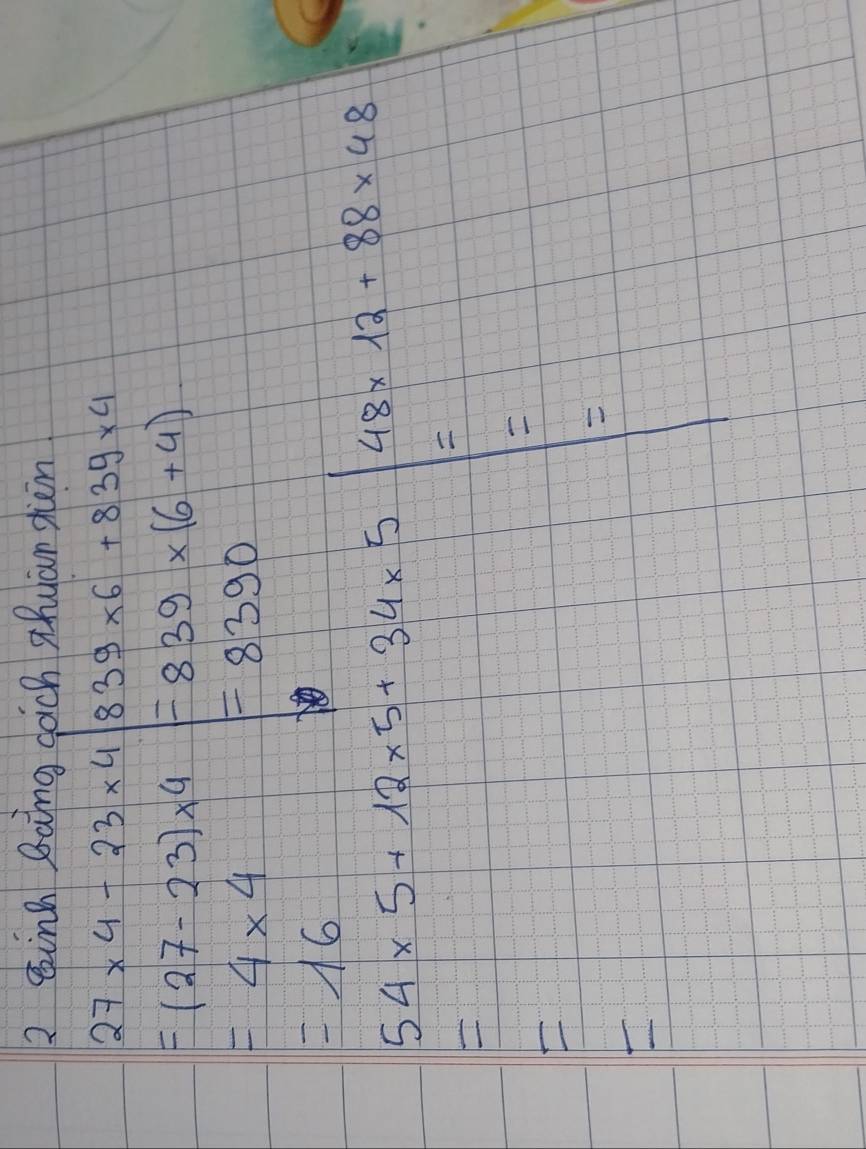 2 Tính bằng cách thuận tiện.
27 × 4 - 23 × 4
= (27 - 23) × 4
= 4 × 4
= 16
839 × 6 + 839 × 4
= 839 × (6 + 4)
= 8390
54 × 5 + 12 × 5 + 34 × 5
=
=
=
48 × 12 + 88 × 48
=
=
=